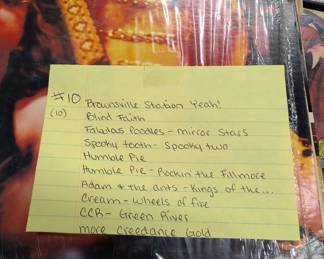 #10
(10)
Brownsville Station Yeah!
Blind Faith
Fabulas Poodles - mirror stars
Spooky tooth - Spooky two
Humble Pie
Humble Pie - Rockin' the Fillmore
Adam + the ants - Kings of the...
Cream - Wheels of fire
CCR - Green River
more creedance Gold